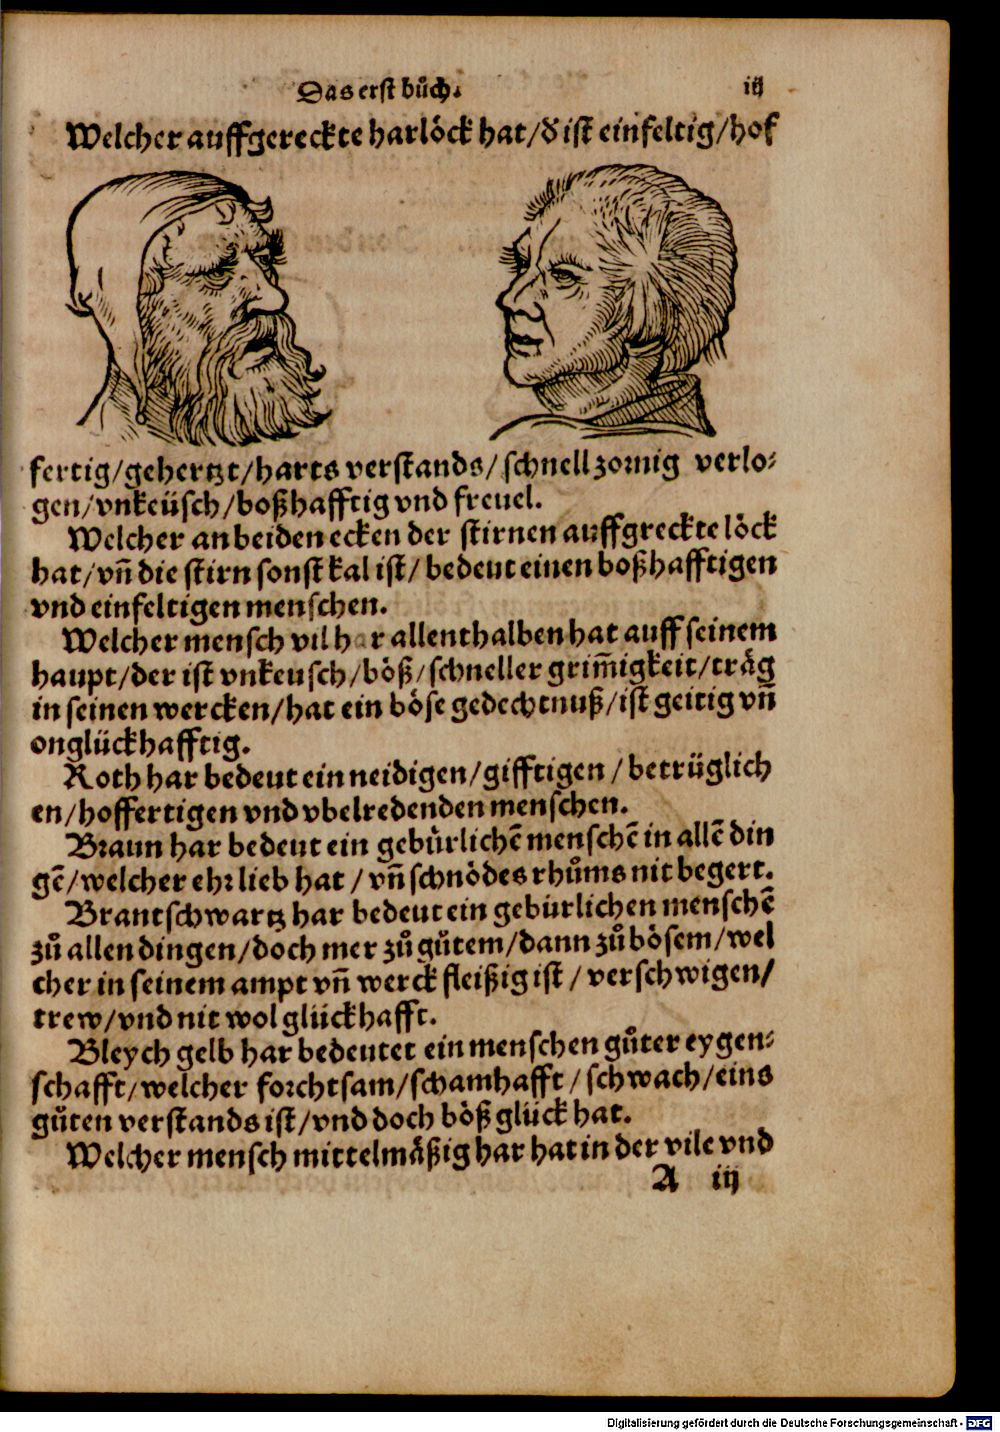 Das erst bůch. iij
Welcher auffgereckte harlöck hat/ð ist einfeltig/hof
fertig/gehertzt/harts verstands/schnell zornig verlo⸗
gen/vnkeüsch/boßhafftig vnd freuel.
Welcher an beiden ecken der stirnen auffgreckte löck
hat/vñ die stirn sonst kal ist/bedeut einen boßhafftigen
vnd einfeltigen menschen.
Welcher mensch vil h r allenthalben hat auff seinem
haupt/der ist vnkeusch/böß/schneller grim̃igkeit/träg
in seinen wercken/hat ein böse gedechtnuß/ist geitig vñ
onglückhafftig.
Roth har bedeut ein neidigen/gifftigen/betrüglich
en/hoffertigen vnd vbelredenden menschen.
Braun har bedeut ein gebürlichẽ menschẽ in allẽ din
gẽ/welcher ehr lieb hat/vñ schnödes rhůms nit begert.
Brantschwartz har bedeut ein gebürlichen menschẽ
zů allen dingen/doch mer zů gůtem/dann zů bösem/wel
cher in seinem ampt vñ werck fleißig ist/verschwigen/
trew/vnd nit wol glückhafft.
Bleych gelb har bedeutet ein menschen gůter eygen⸗
schafft/welcher forchtsam/schamhafft/schwach/eins
gůten verstands ist/vnd doch böß glück hat.
Welcher mensch mittelmäßig har hat in der vile vnd
A iij
Digitalisierung gefördert durch die Deutsche Forschungsgemeinschaft - DFG